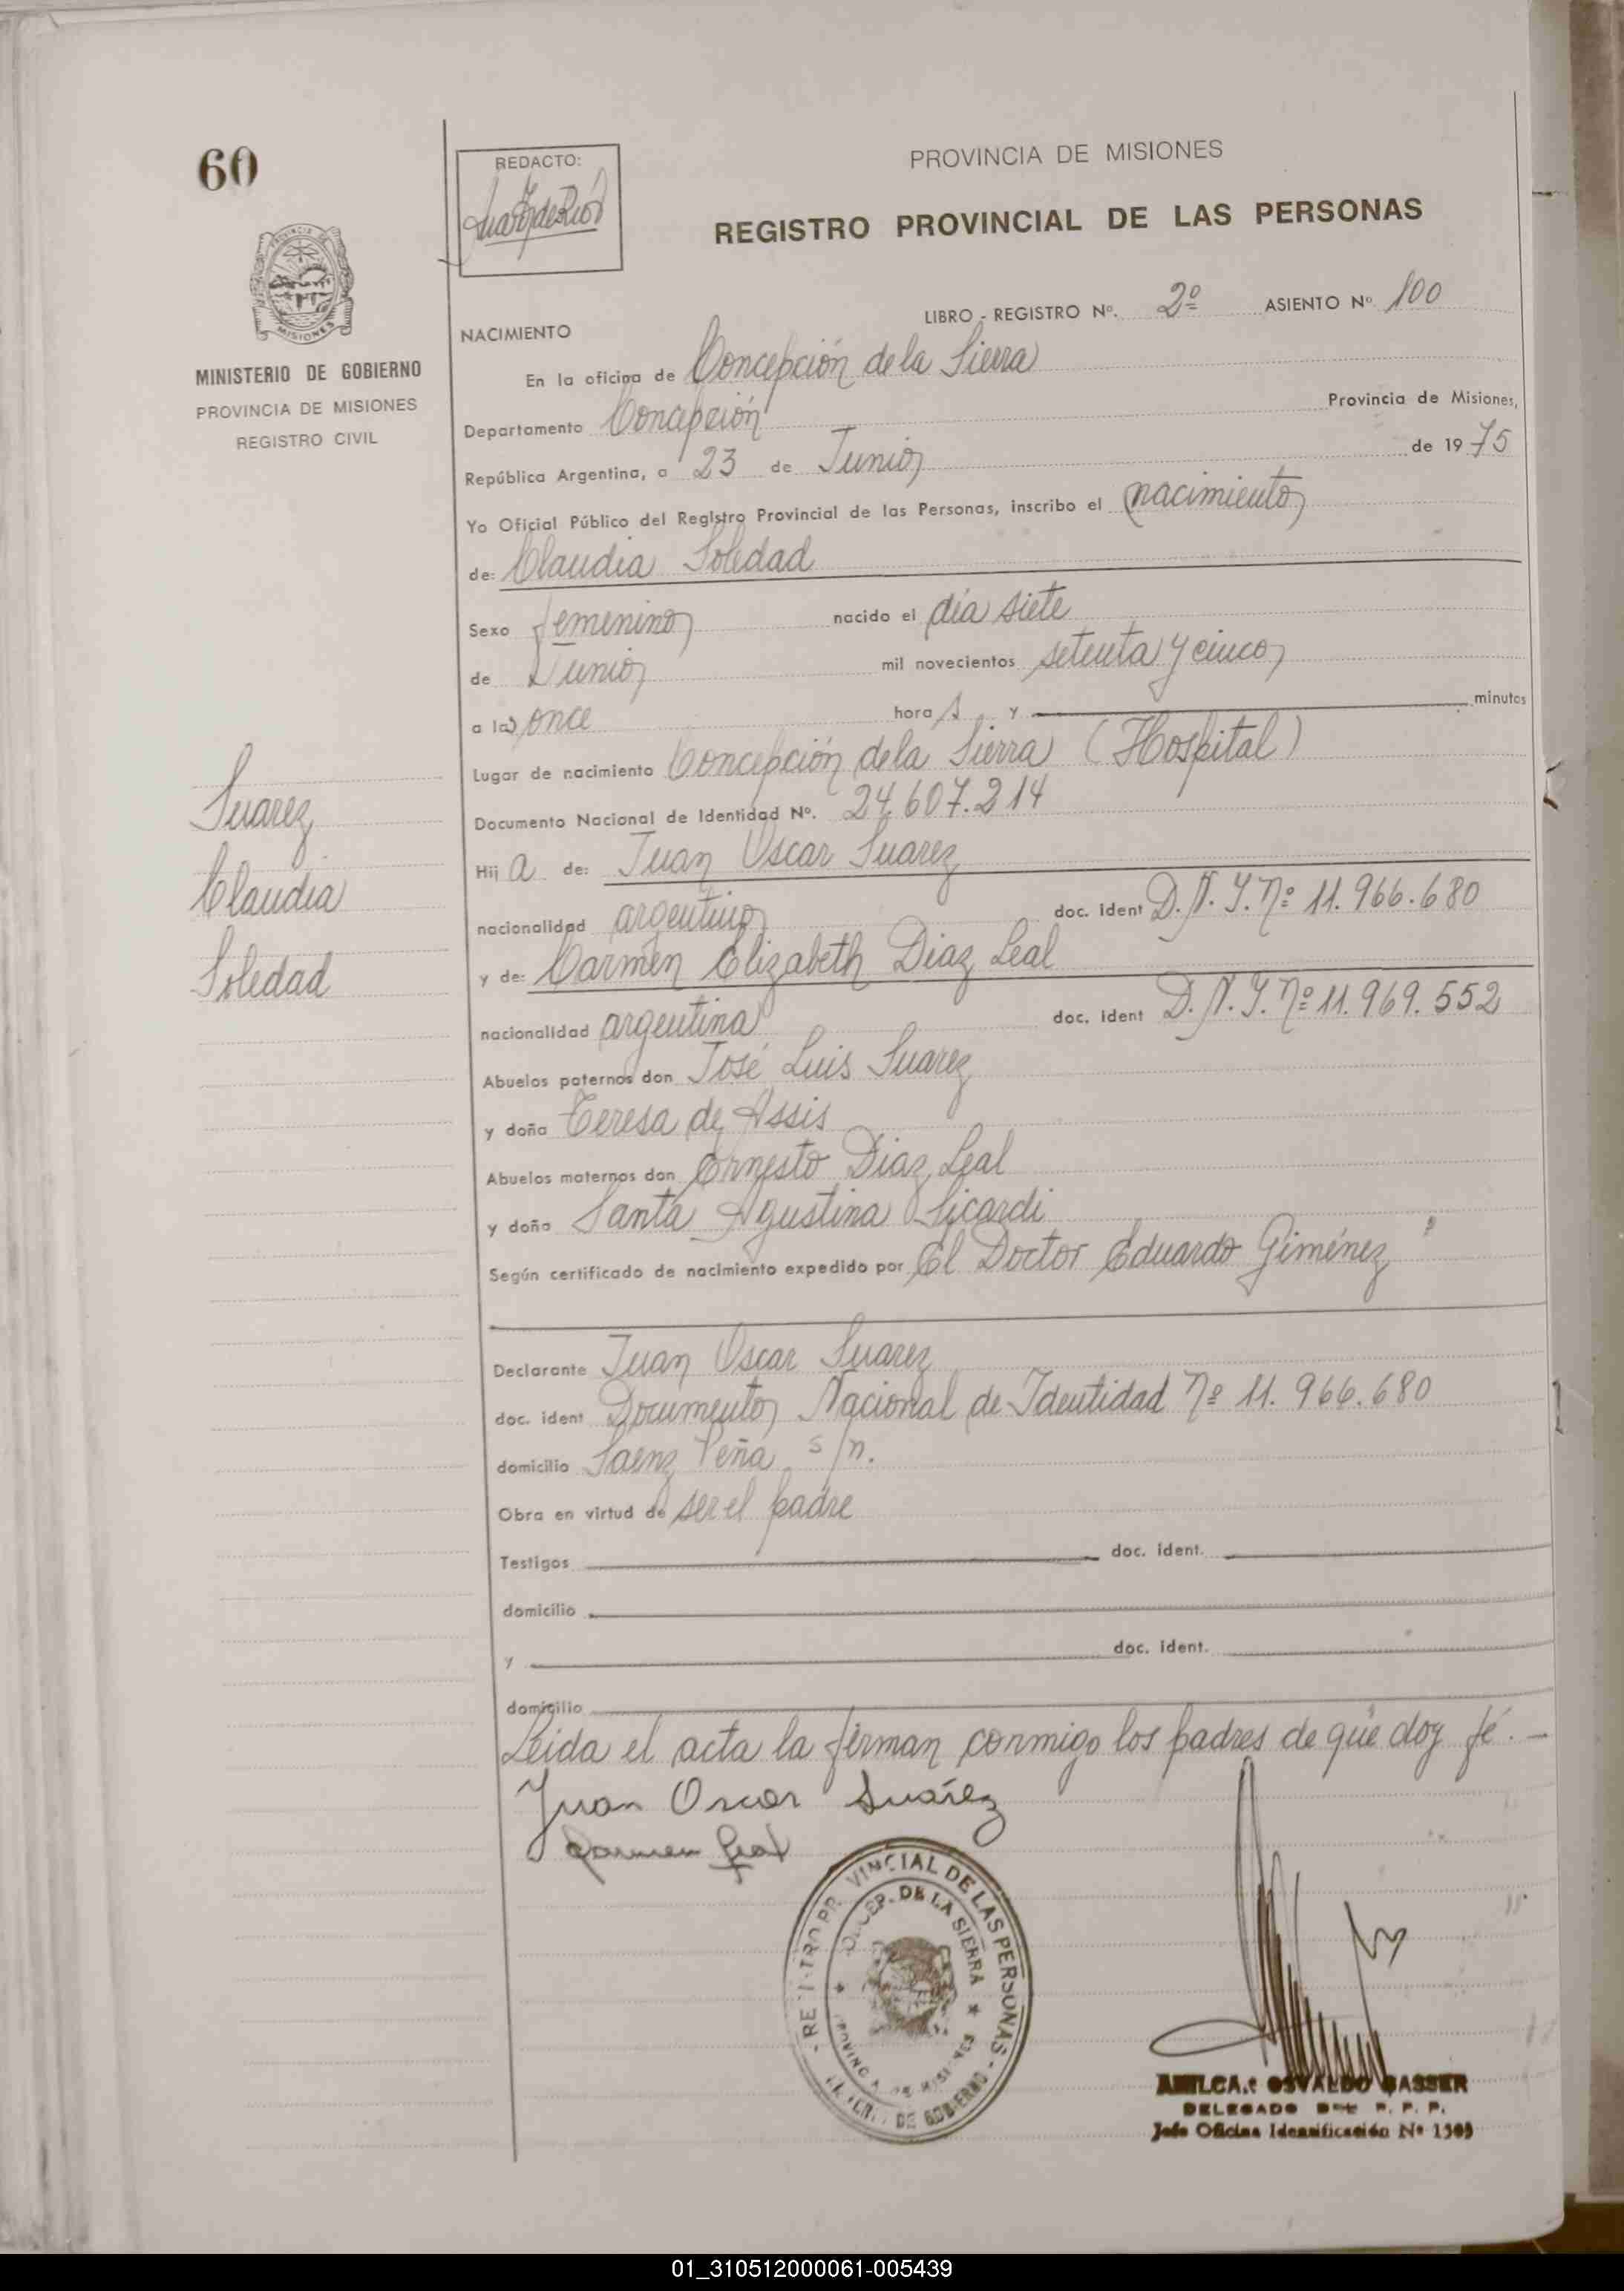 60
REDACTO:
PROVINCIA DE MISIONES
REGISTRO PROVINCIAL DE LAS PERSONAS
MISIONES
MINISTERIO DE GOBIERNO
PROVINCIA DE MISIONES
REGISTRO CIVIL
LIBRO - REGISTRO Nº. 2º ASIENTO Nº. 100
NACIMIENTO
En la oficina de Concepción de la Sierra
Departamento Concepción Provincia de Misiones,
República Argentina, a 23 de Junio de 1975
Yo Oficial Público del Registro Provincial de las Personas, inscribo el nacimiento
de: Claudia Soledad
Sexo femenino nacido el día siete
de Junio mil novecientos setenta y cinco
a las once horas y minutos
Lugar de nacimiento Concepción de la Sierra (Hospital)
Documento Nacional de Identidad Nº. 24.607.214
Hija de: Juan Oscar Suarez
nacionalidad argentino doc. ident D.N.I. Nº 11.966.680
y de: Carmen Elizabeth Diaz Leal
nacionalidad argentina doc. ident D.N.I. Nº 11.969.552
Abuelos paternos don José Luis Suarez
y doña Teresa de Assis
Abuelos maternos don Ernesto Diaz Leal
y doña Santa Agustina Sicardi
Según certificado de nacimiento expedido por El Doctor Eduardo Giménez
Suarez
Claudia
Soledad
Declarante Juan Oscar Suarez
doc. ident Documento Nacional de Identidad Nº 11.966.680
domicilio Saenz Peña s/n.
Obra en virtud de ser el padre
Testigos doc. ident.
domicilio
y doc. ident.
domicilio
Leida el acta la firman conmigo los padres de que doy fé.-
Juan Oscar Suárez
Carmen Leal
VINCIAL DE LAS PERSONAS
DE LA SIERRA
DE GOBIERNO
OSVALDO
DELEGADO
Jefe Oficina Identificación Nº 1505
01_310512000061-005439